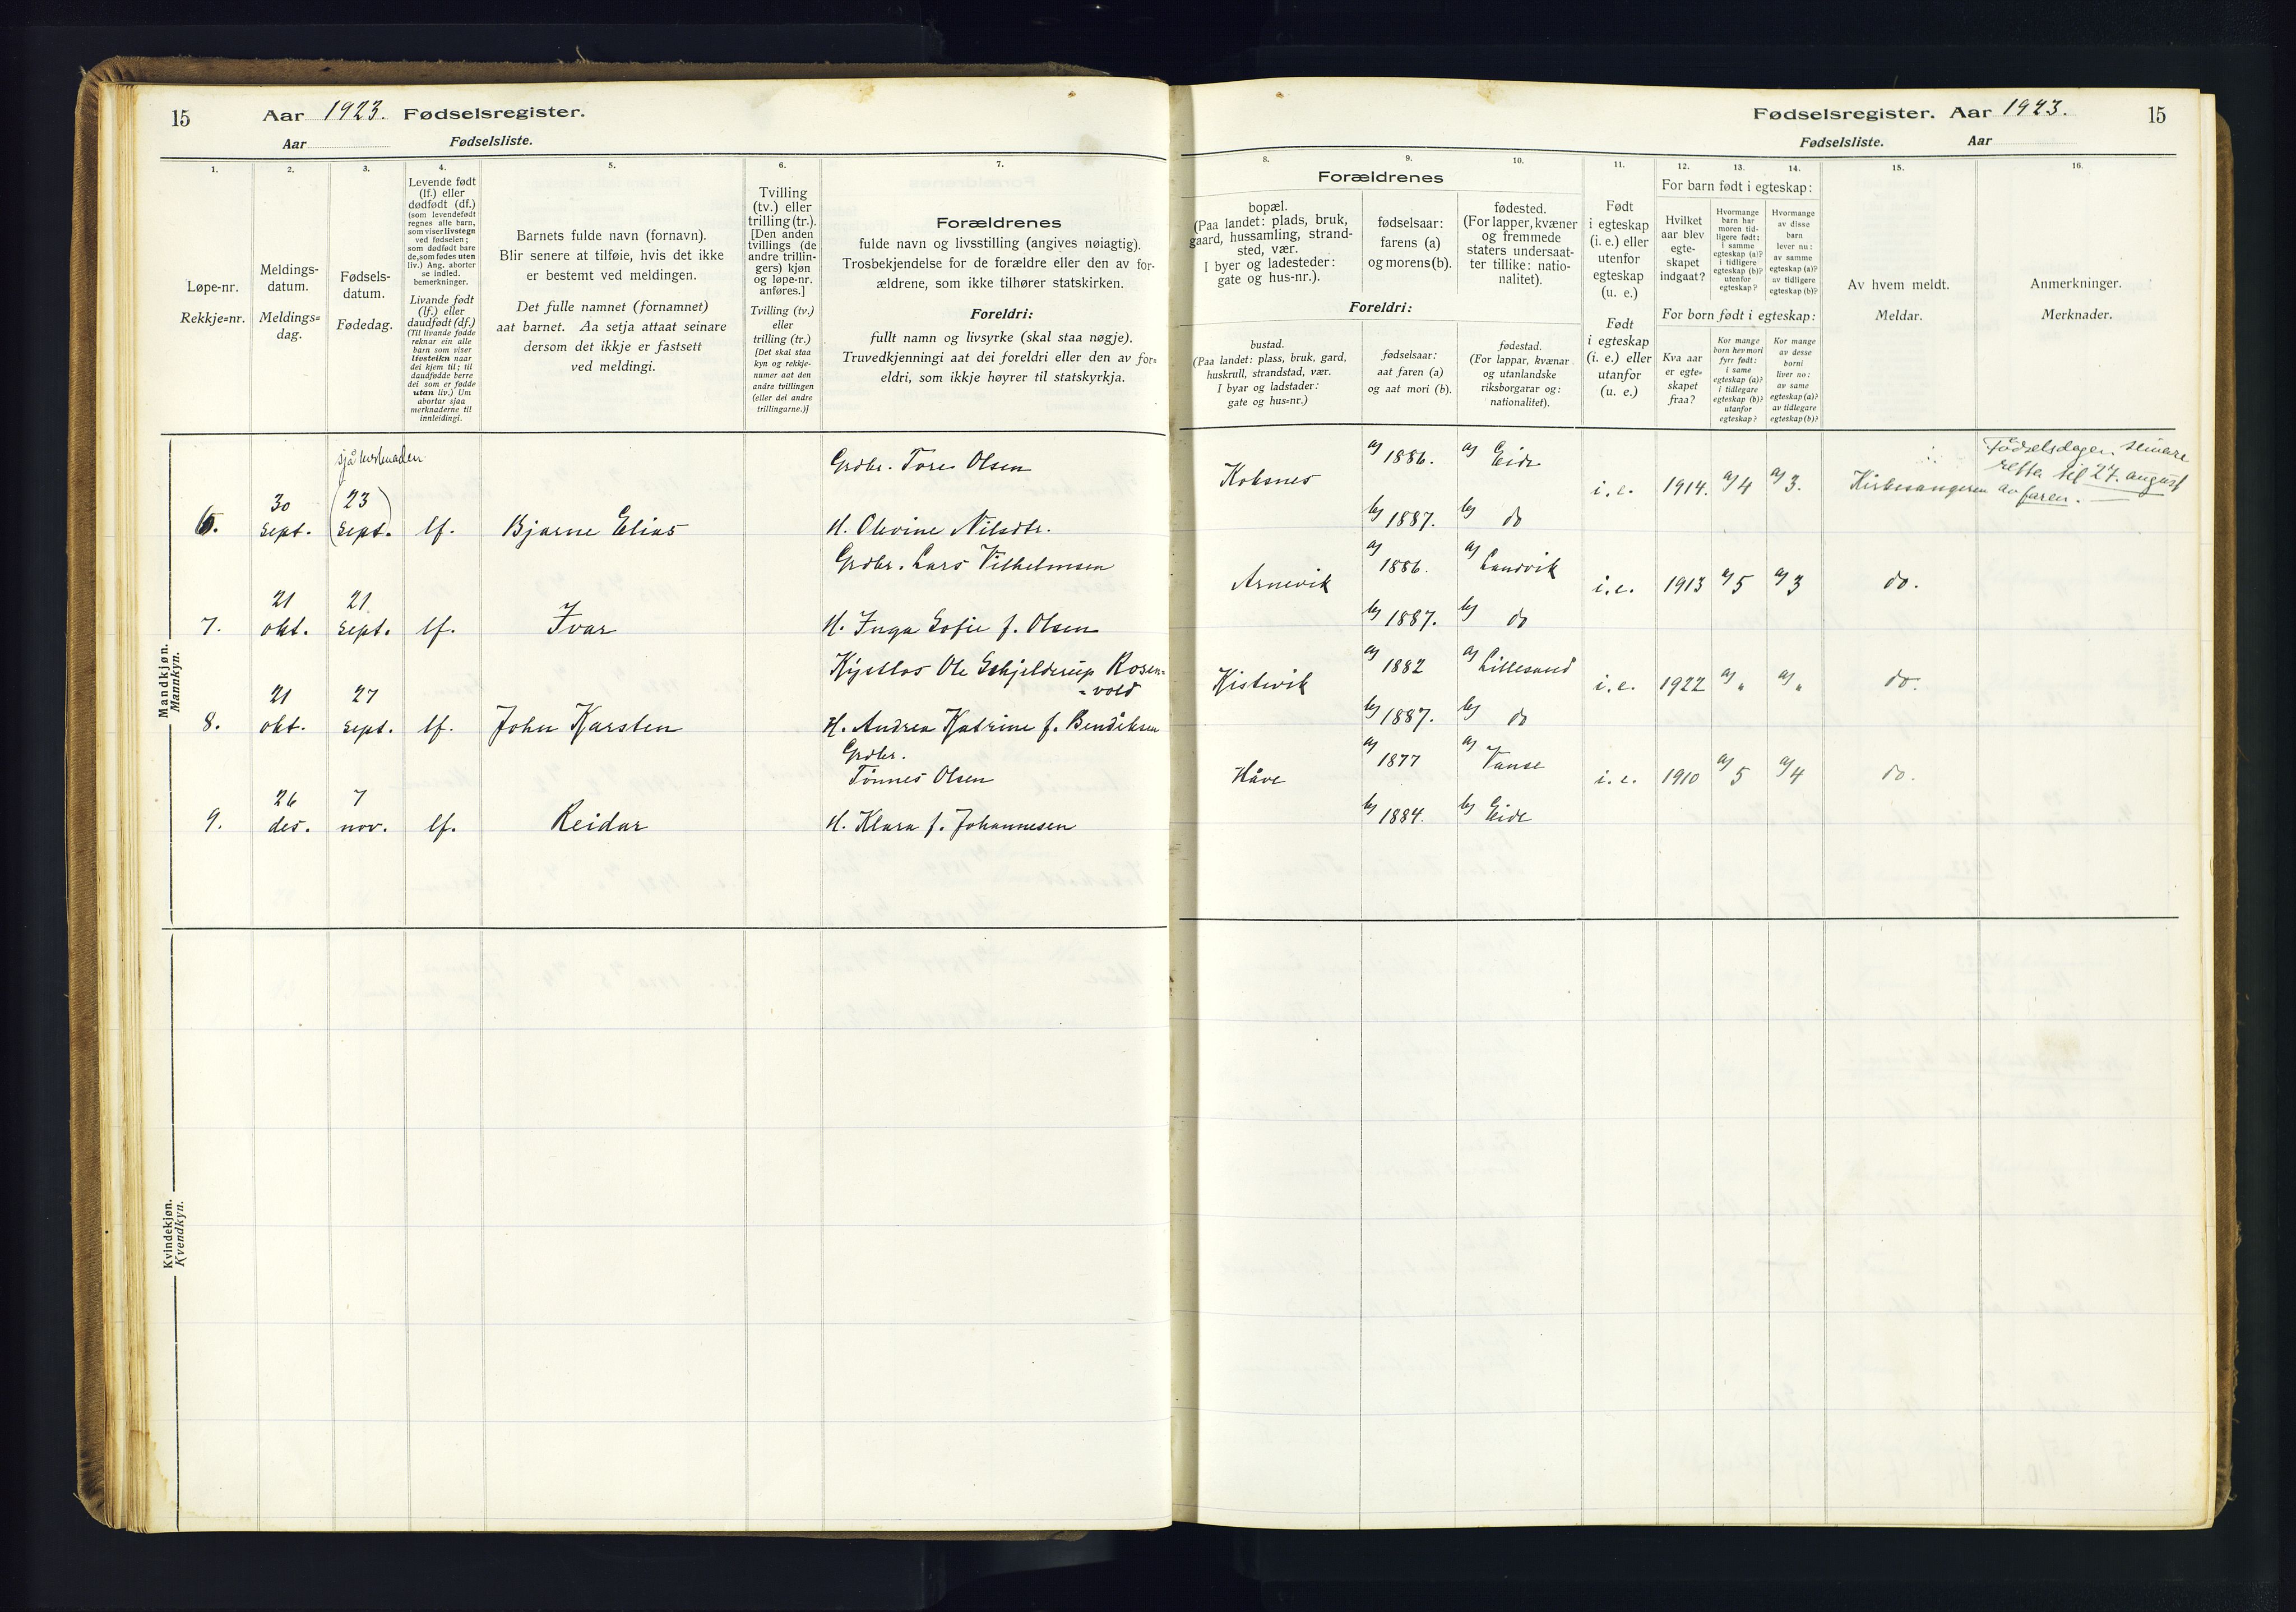 15
Aar 1923. Fødselsregister.
Aar
Fødselsliste.
1.
2.
3.
4.
5.
6.
7.
Løpe-nr.
Rekkje=nr.
Meldings-
datum.
Meldings=
dag.
Fødsels-
datum.
Fødedag.
Levende født
(lf.) eller
dødfødt (df.)
(som levendefødt
regnes alle barn,
som viser livstegn
ved fødselen;
som dødfødt bare
de, som fødes uten
liv.) Ang. aborter
se indled.
bemerkninger.
Livande født
(lf.) eller
daudfødt (df.)
(Til livande fødde
reknar ein alle
barn som viser
livsteikn naar
dei kjem til; til
daudfødde berre
dei som er fødde
utan liv.) Um
abortar sjaa
merknaderne til
innleidingi.
Barnets fulde navn (fornavn).
Blir senere at tilføie, hvis det ikke
er bestemt ved meldingen.
Det fulle namnet (fornamnet)
aat barnet. Aa setja attaat seinare
dersom det ikkje er fastsett
ved meldingi.
Tvilling
(tv.) eller
trilling (tr.).
[Den anden
tvillings (de
andre trillin-
gers) kjøn
og løpe-nr.
anføres.]
Tvilling (tv.)
eller
trilling (tr.)
[Det skal staa
kyn og rekkje-
numer aat den
andre tvillingen
(eller dei andre
trillingarne.)]
Forældrenes
fulde navn og livsstilling (angives nøiagtig).
Trosbekjendelse for de forældre eller den av for-
ældrene, som ikke tilhører statskirken.
Foreldri:
fullt namn og livsyrke (skal staa nøgje).
Truvedkjenningi aat dei foreldri eller den av for=
eldri, som ikkje høyrer til statskyrkja.
Mandkjøn.
Mannkyn.
6.
30
sept.
sjå merknaden
(23
sept.)
lf.
Bjarne Elias
Grdbr. Tore Olsen
H. Olevine Nilsdtr.
7.
21
okt.
21
sept.
lf.
Ivar
Grdbr. Lars Vilhelmsen
H. Inga Sofie f. Olsen
8.
21
okt.
27
sept.
lf.
John Karsten
Kystlos Ole Schjelderup Rosen=
=vold
H. Andrea Katrine f. Bendiksen
9.
26
des.
7
nov.
lf.
Reidar
Grdbr.
Tønnes Olsen
H. Klara f. Johannesen
Kvindekjøn.
Kvendkyn.
Fødselsregister. Aar 1923.
15
Fødselsliste.
Aar
8.
9.
10.
11.
12.
13.
14.
15.
16.
Forældrenes
bopæl.
(Paa landet: plads, bruk,
gaard, hussamling, strand-
sted, vær.
I byer og ladesteder:
gate og hus-nr.).
fødselsaar:
farens (a)
og morens (b).
fødested.
(For lapper, kvæner
og fremmede
staters undersaat-
ter tillike: natio-
nalitet).
Foreldri:
bustad.
(Paa landet: plass, bruk, gard,
huskrull, strandstad, vær.
I byar og ladstader:
gate og hus=nr.)
fødselsaar:
aat faren (a)
og aat mori (b).
fødestad.
(For lappar, kvænar
og utanlandske
riksborgarar og:
nationalitet).
Født
i egteskap
(i. e.) eller
utenfor
egteskap
(u. e.)
Født
i egteskap
(i. e.) eller
utanfor
(u. e.)
For barn født i egteskap:
Hvilket
aar blev
egte-
skapet
indgaat?
Hvormange
barn har
moren tid-
ligere født:
i samme
egteskap (a)?
i tidligere
egteskap (b)?
utenfor
egteskap?
Hvormange
av disse
barn
lever nu:
av samme
egteskap (a)?
av tidligere
egteskap (b)?
For born født i egteskap:
Kva aar
er egte=
skapet
fraa?
Kor mange
born hev mori
fyrr født:
i same
egteskap (a)?
i tidlegare
egteskap (b)?
utanfor
egteskap?
Kor mange
av desse
borni
liver no:
av same
egteskap (a)?
av tidlegare
egteskap (b)?
Av hvem meldt.
Meldar.
Anmerkninger.
Merknader.
a) 1886.
a) Eide
i. e.
1914.
a) 4
a) 3.
Kirkesangeren
Fødselsdagen seinare
retta til 27. august
av faren.
b) 1887.
b) do
Arnevik
a) 1886.
a) Landvik
i. e.
1913
a) 5
a) 3
do.
b) 1887.
b) do
Kistevik
a) 1882
a) Lillesand
i. e.
1922
a) "
a) "
do.
b) 1887.
b) do
Håve
a) 1877
a) Vanse
i. e.
1910
a) 5
a) 4
do.
b) 1884.
b) Eide